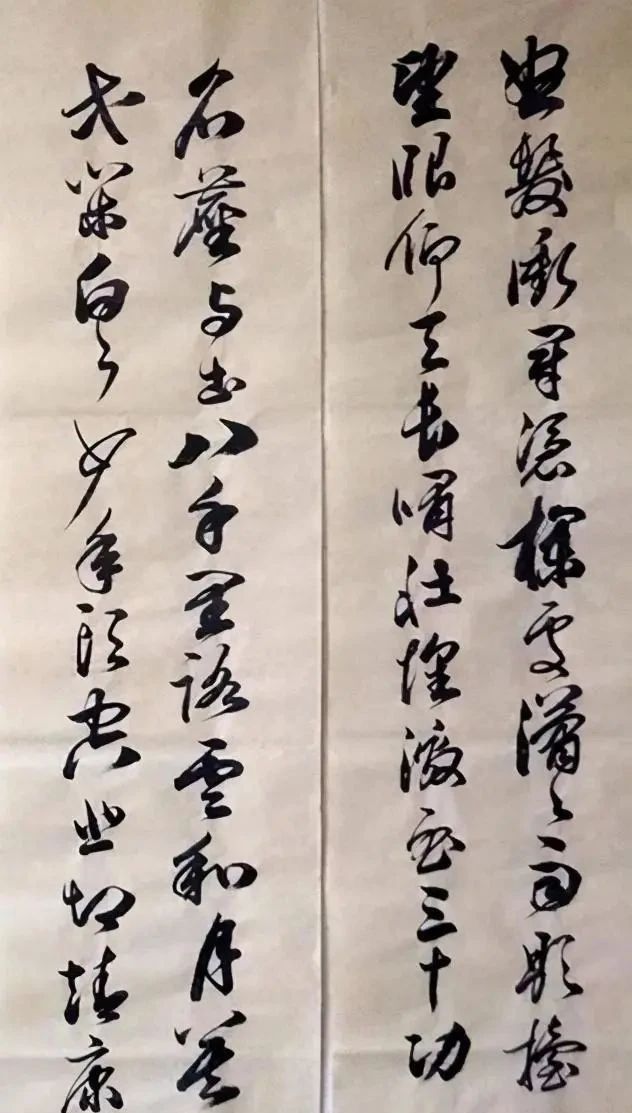 怒髮衝冠憑欄處瀟々雨歇擡
望眼仰天長嘯壯懷激烈三十功
名塵与土八千里路雲和月莫
等閑白了少年頭空悲切靖康